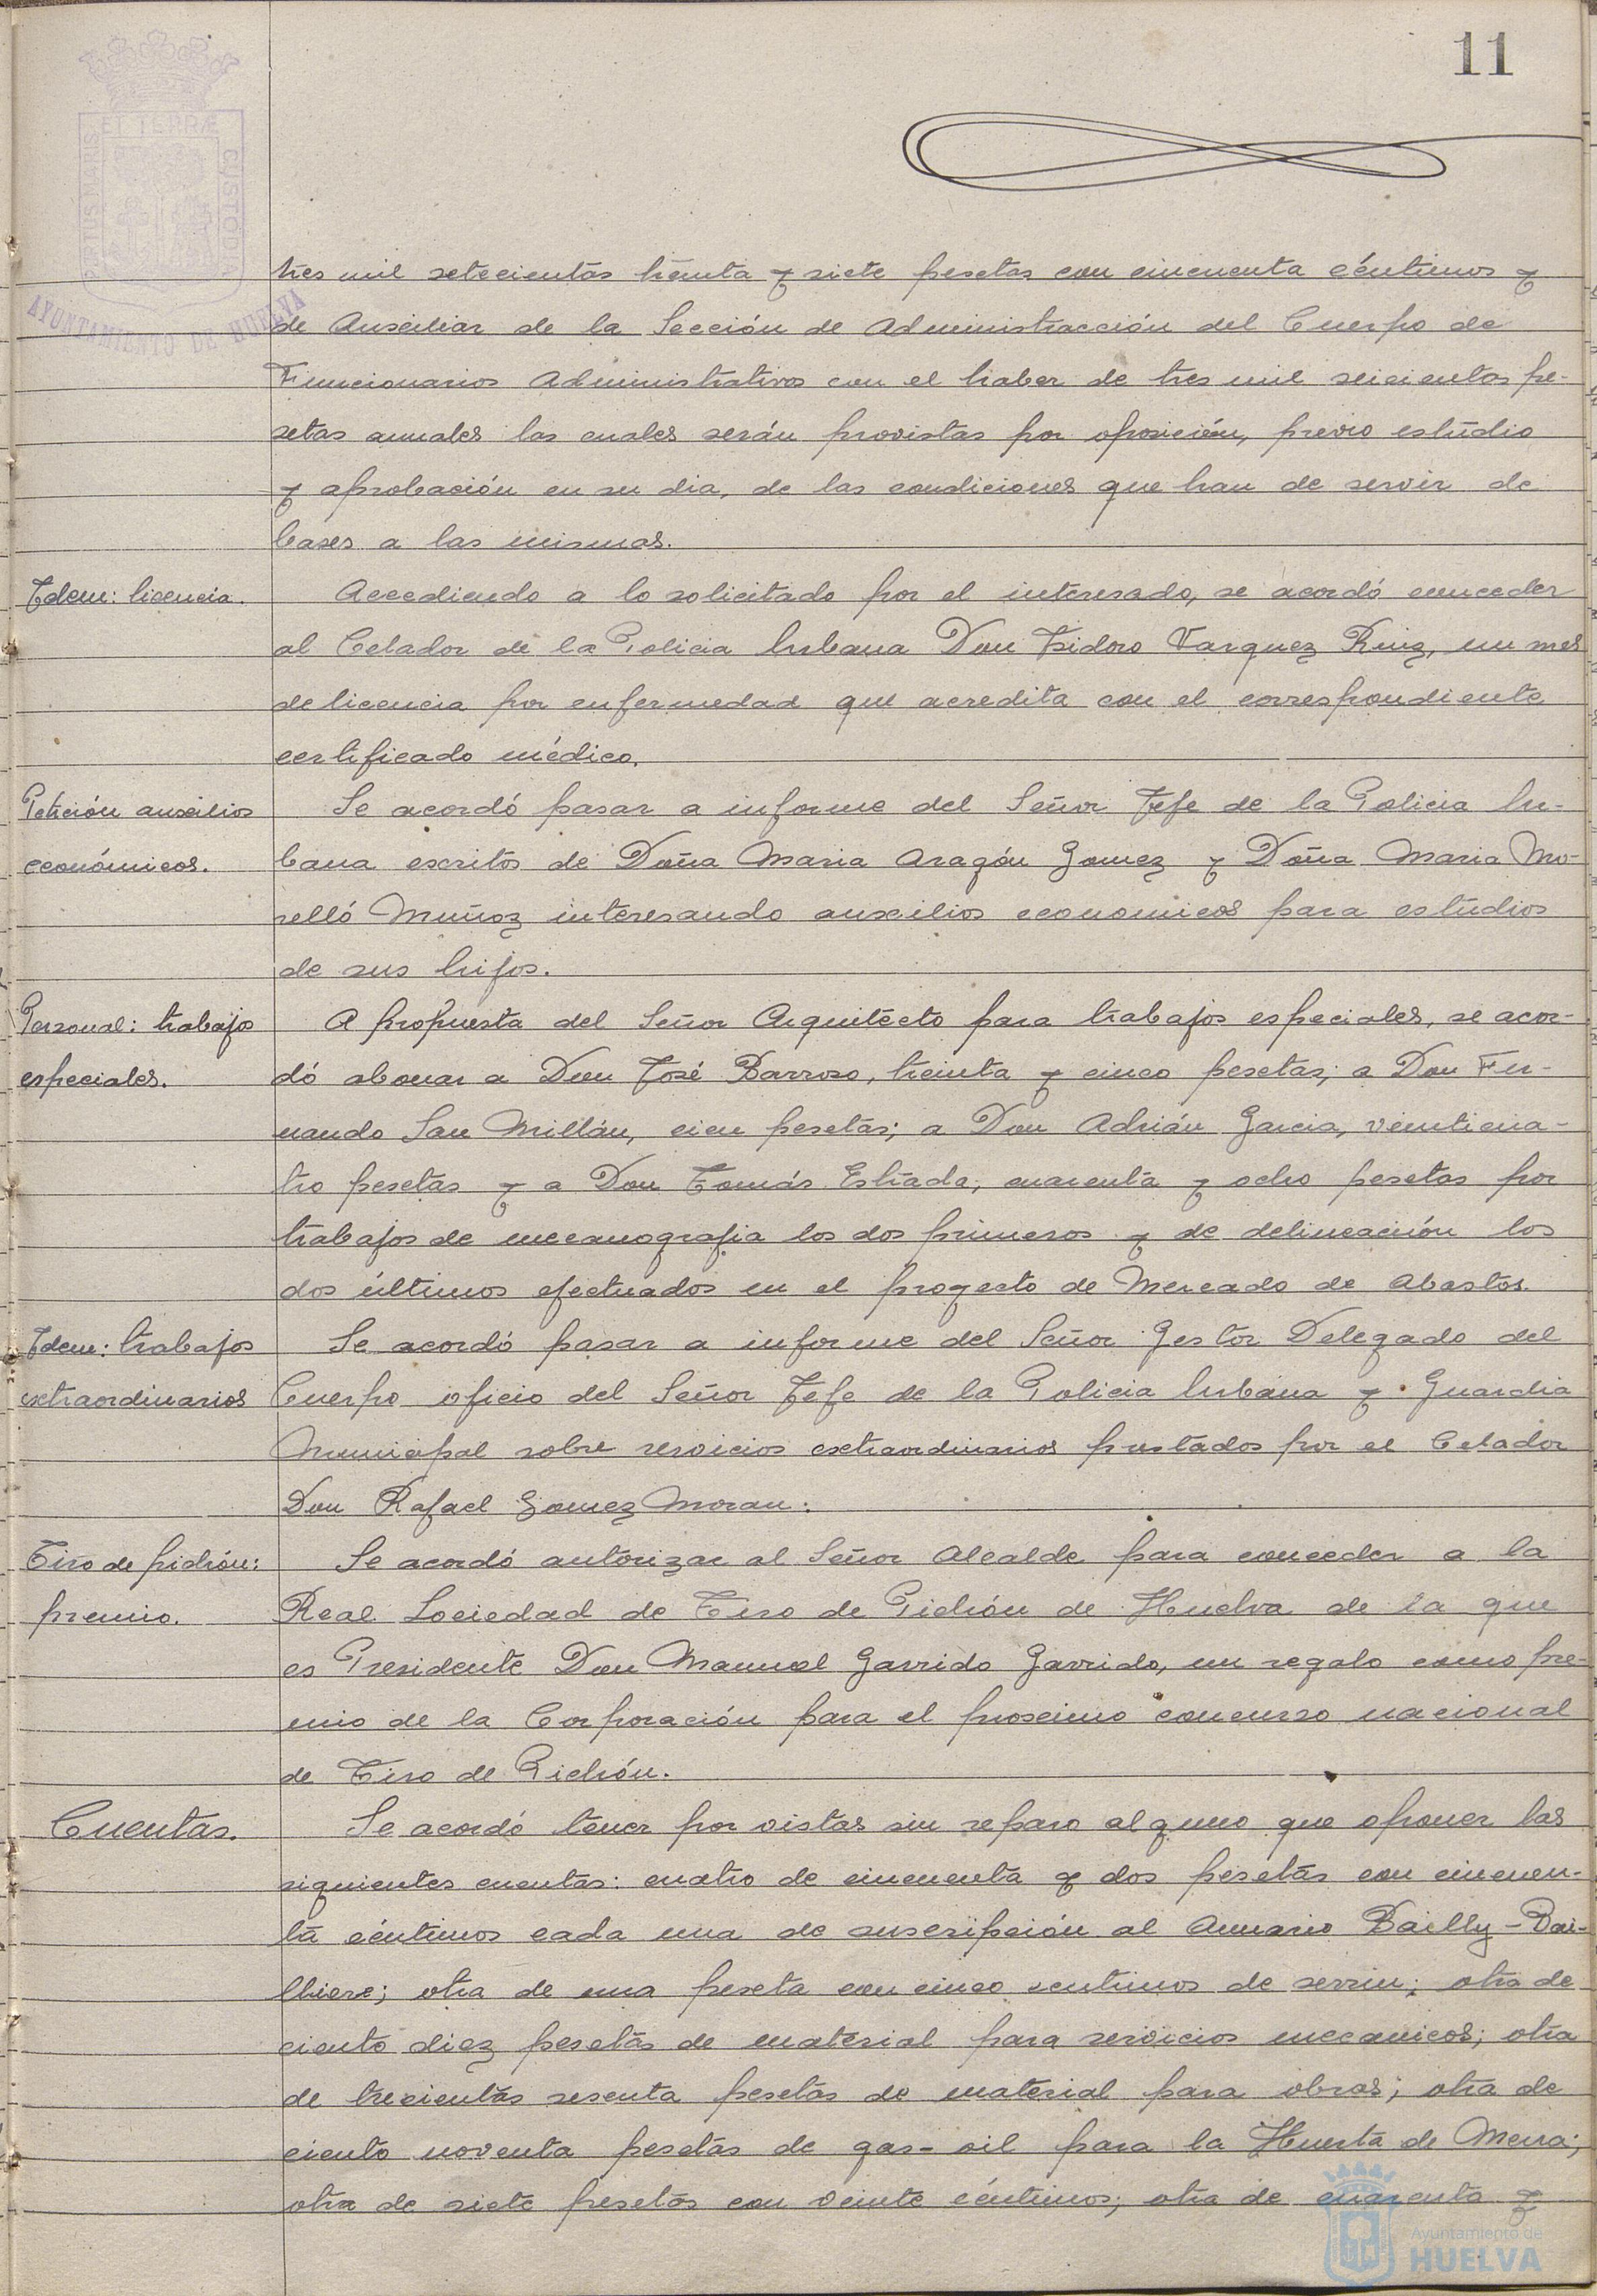 11
ET TERRÆ
PORTUS MARIS
CUSTODI
AYUNTAMIENTO DE HUELVA
tres mil setecientas treinta y siete pesetas con cincuenta céntimos y
de Auxiliar de la Sección de Administracción del Cuerpo de
Funcionarios Administrativos con el haber de tres mil seicientas pe-
setas anuales las cuales serán provistas por oposición, previo estudio
y aprobación en su dia, de las condiciones que han de servir de
bases a las mismas.
Idem: licencia.
Accediendo a lo solicitado por el interesado, se acordó conceder
al Celador de la Policia Urbana Don Isidoro Varquez Ruiz, un mes
de licencia por enfermedad que acredita con el correspondiente
certificado médico.
Petición auxilios
económicos.
Se acordó pasar a informe del Señor Jefe de la Policia Ur-
bana escritos de Doña Maria Aragón Gomez y Doña Maria Mo-
relló Muñoz interesando auxilios economicos para estudios
de sus hijos.
Personal: trabajos
especiales.
A propuesta del Señor Arquitecto para trabajos especiales, se acor-
dó abonar a Don José Barroso, treinta y cinco pesetas; a Don Fer-
nando San Millán, cien pesetas; a Don Adrián Garcia, veinticua-
tro pesetas y a Don Tomás Estrada, cuarenta y ocho pesetas por
trabajos de mecanografia los dos primeros y de delineación los
dos últimos efectuados en el proyecto de Mercado de Abastos.
Idem: trabajos
extraordinarios
Se acordó pasar a informe del Señor Gestor Delegado del
Cuerpo oficio del Señor Jefe de la Policia Urbana y Guardia
Municipal sobre servicios extraordinarios prestados por el Celador
Don Rafael Gomez Moran.
Tiro de pichón:
premio.
Se acordó autorizar al Señor Alcalde para conceder a la
Real Sociedad de Tiro de Pichón de Huelva de la que
es Presidente Don Manuel Garrido Garrido, un regalo como pre-
mio de la Corporación para el proximo concurso nacional
de Tiro de Pichón.
Cuentas.
Se acordó tener por vistas sin reparo alguno que oponer las
siguientes cuentas: cuatro de cincuenta y dos pesetas con cincuen-
ta céntimos cada una de suscripción al Anuario Bailly-Bai-
lliere; otra de una peseta con cinco centimos de serrin; otra de
ciento diez pesetas de material para servicios mecanicos; otra
de trecientas sesenta pesetas de material para obras; otra de
ciento noventa pesetas de gas-oil para la Huerta de Mena;
otra de siete pesetas con veinte céntimos; otra de cuarenta y
Ayuntamiento de
HUELVA